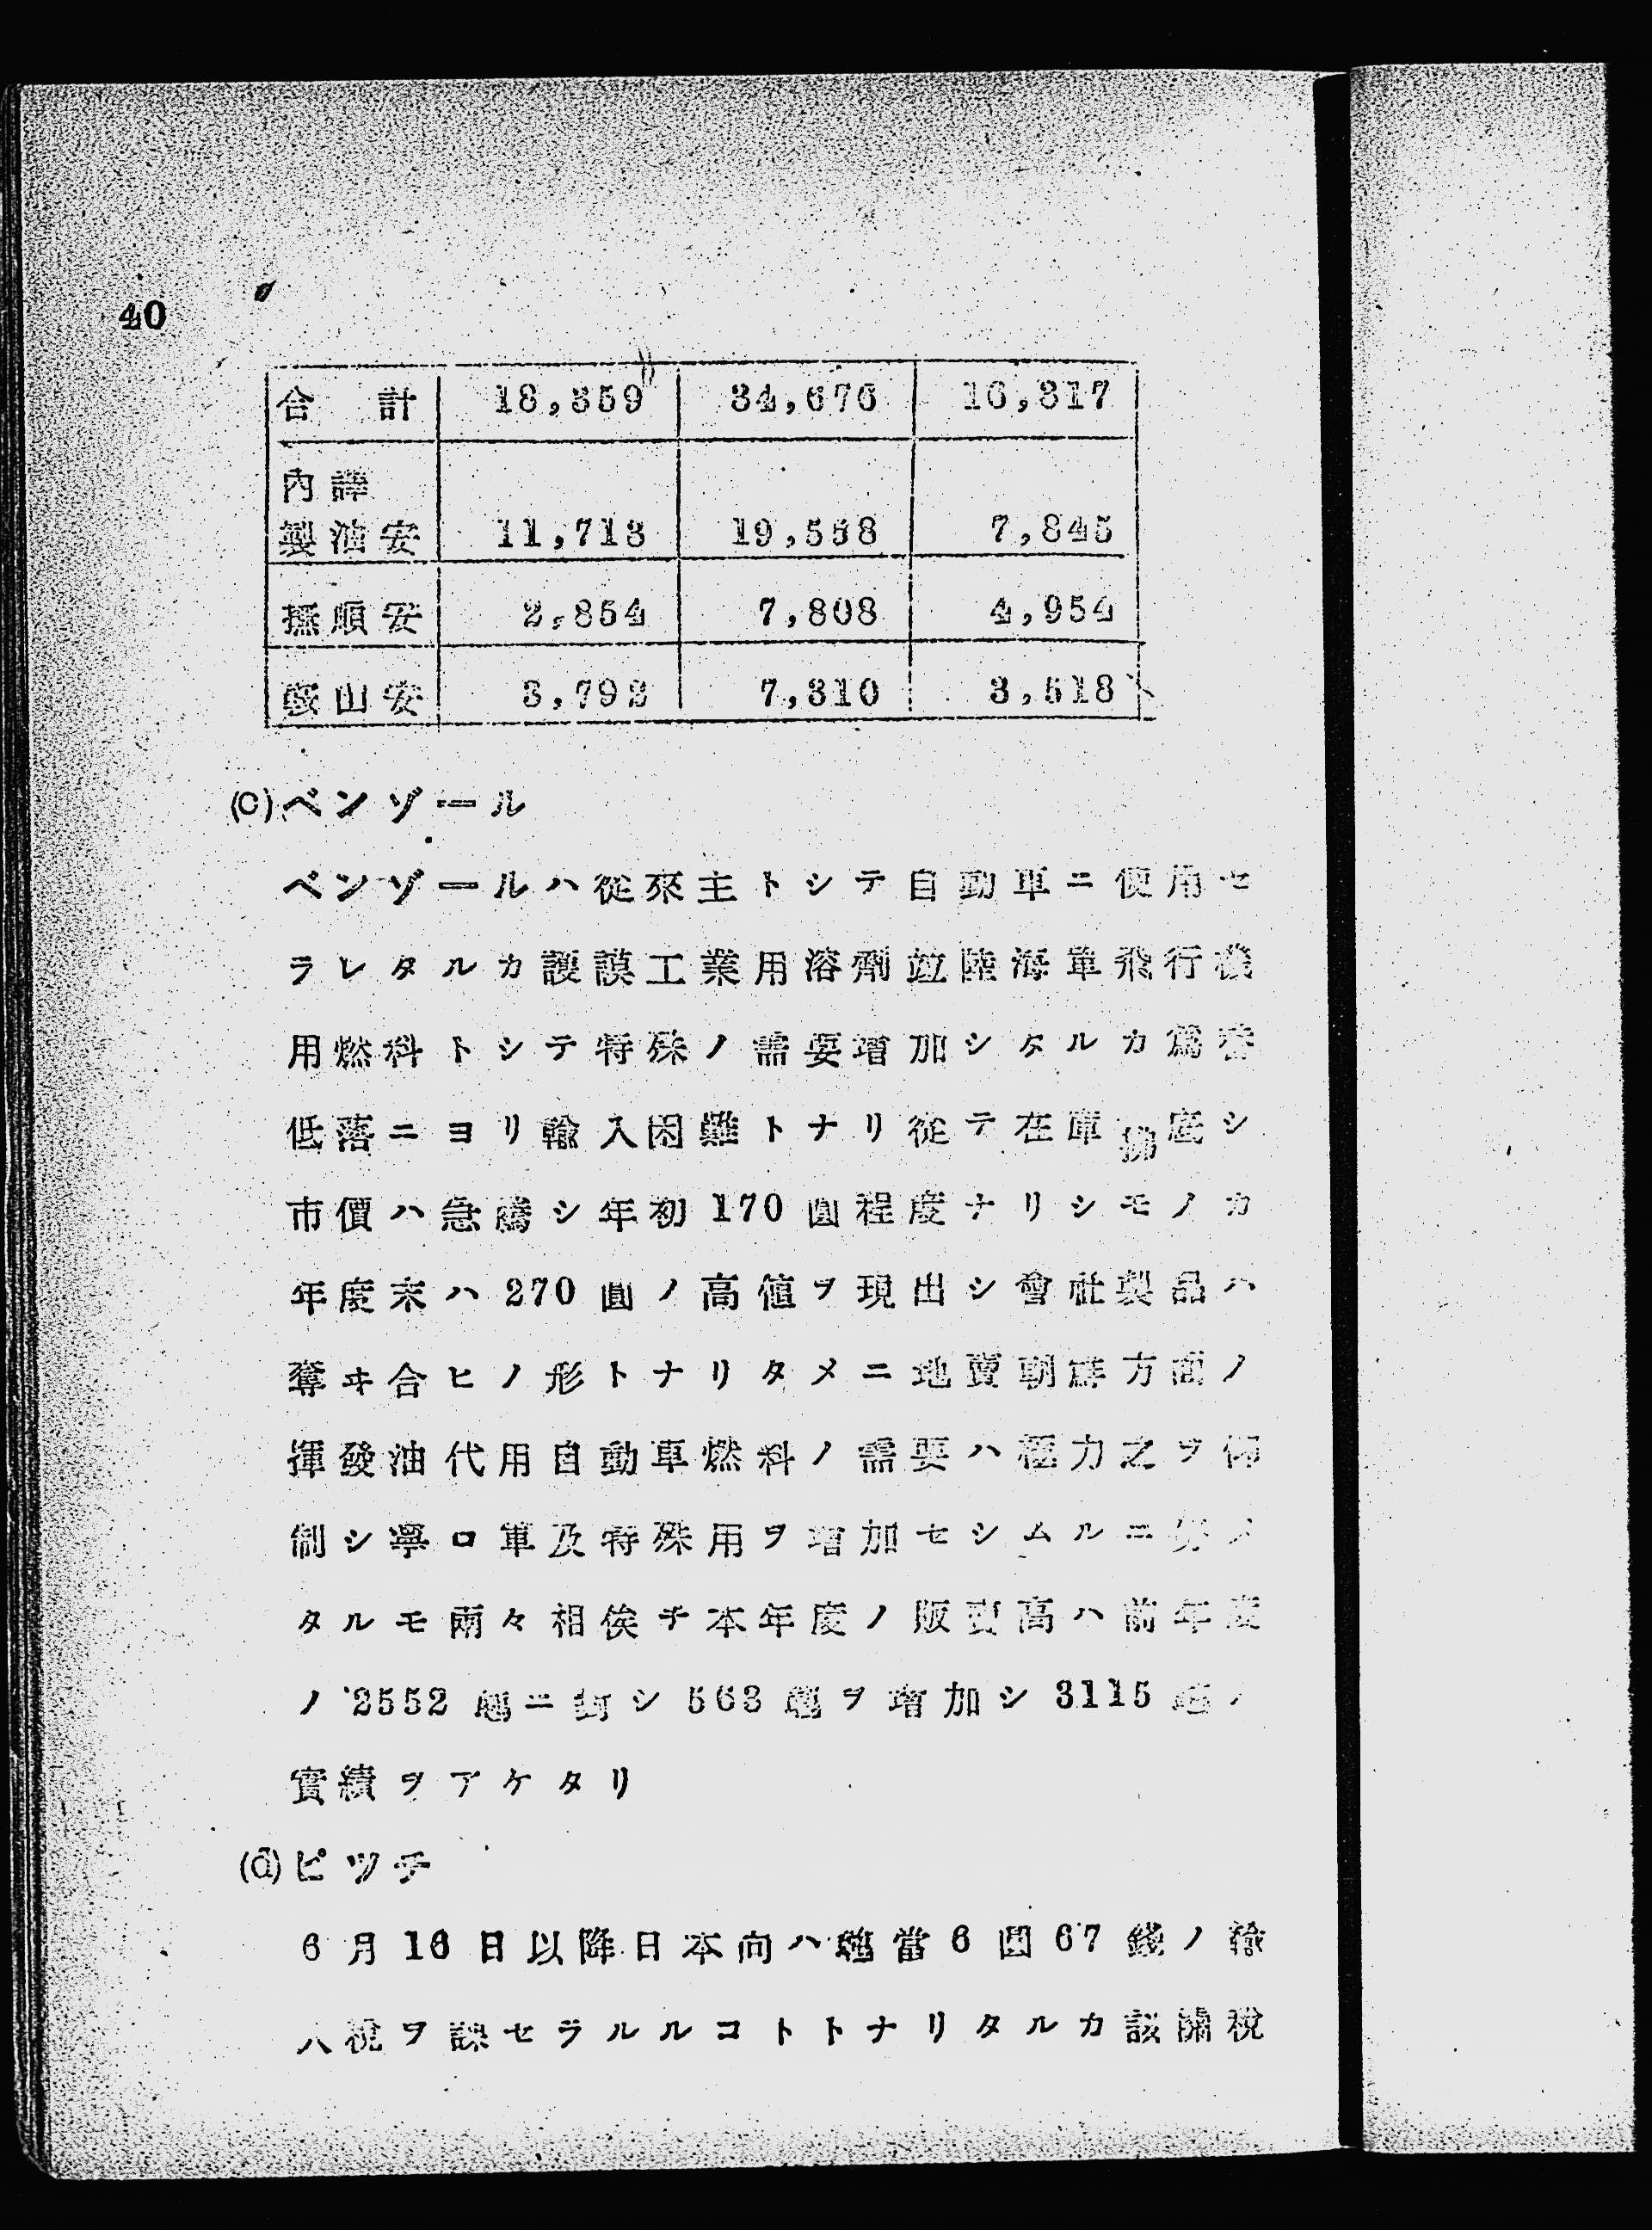 40
合計 18,359 34,676 16,317
内譯
製油安 11,713 19,558 7,845
撫順安 2,854 7,808 4,954
鞍山安 3,792 7,310 3,518
(C)ベンゾール
ベンゾールハ從來主トシテ自動車ニ使用セ
ラレタルカ護謨工業用溶劑竝陸海軍飛行機
用燃料トシテ特殊ノ需要増加シタルカ爲替
低落ニヨリ輸入困難トナリ從テ在庫拂底シ
市價ハ急騰シ年初170圓程度ナリシモノカ
年度末ハ270圓ノ高値ヲ現出シ會社製品ハ
奪ヰ合ヒノ形トナリタメニ地賣朝鮮方面ノ
揮發油代用自動車燃料ノ需要ハ極力之ヲ抑
制シ寧ロ軍及特殊用ヲ増加セシムルニ努メ
タルモ兩々相俟チ本年度ノ販賣高ハ前年度
ノ2552瓲ニ對シ563瓲ヲ増加シ3115瓲ノ
實績ヲアケタリ
(d)ピツチ
6月16日以降日本向ハ瓲當6圓67錢ノ輸
入税ヲ課セラルルコトトナリタルカ該關税